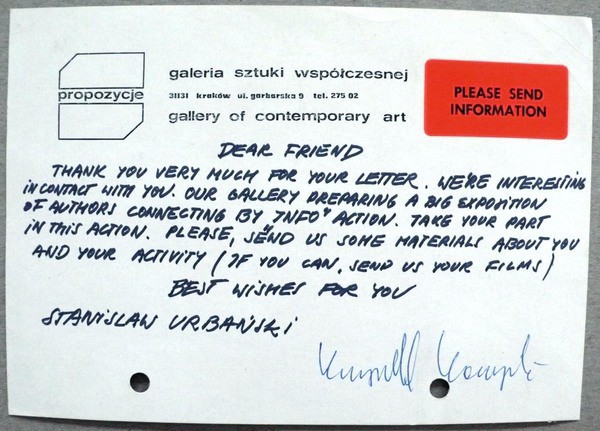 propozycje
galeria sztuki współczesnej
31131 kraków ul. garbarska 9 tel. 275 02
gallery of contemporary art
PLEASE SEND
INFORMATION
DEAR FRIEND
THANK YOU VERY MUCH FOR YOUR LETTER. WE'RE INTERESTING
IN CONTACT WITH YOU. OUR GALLERY PREPARING A BIG EXPOSITION
OF AUTHORS CONNECTING BY "INFO" ACTION. TAKE YOUR PART
IN THIS ACTION. PLEASE, SEND US SOME MATERIALS ABOUT YOU
AND YOUR ACTIVITY (IF YOU CAN, SEND US YOUR FILMS)
BEST WISHES FOR YOU
STANISŁAW URBAŃSKI